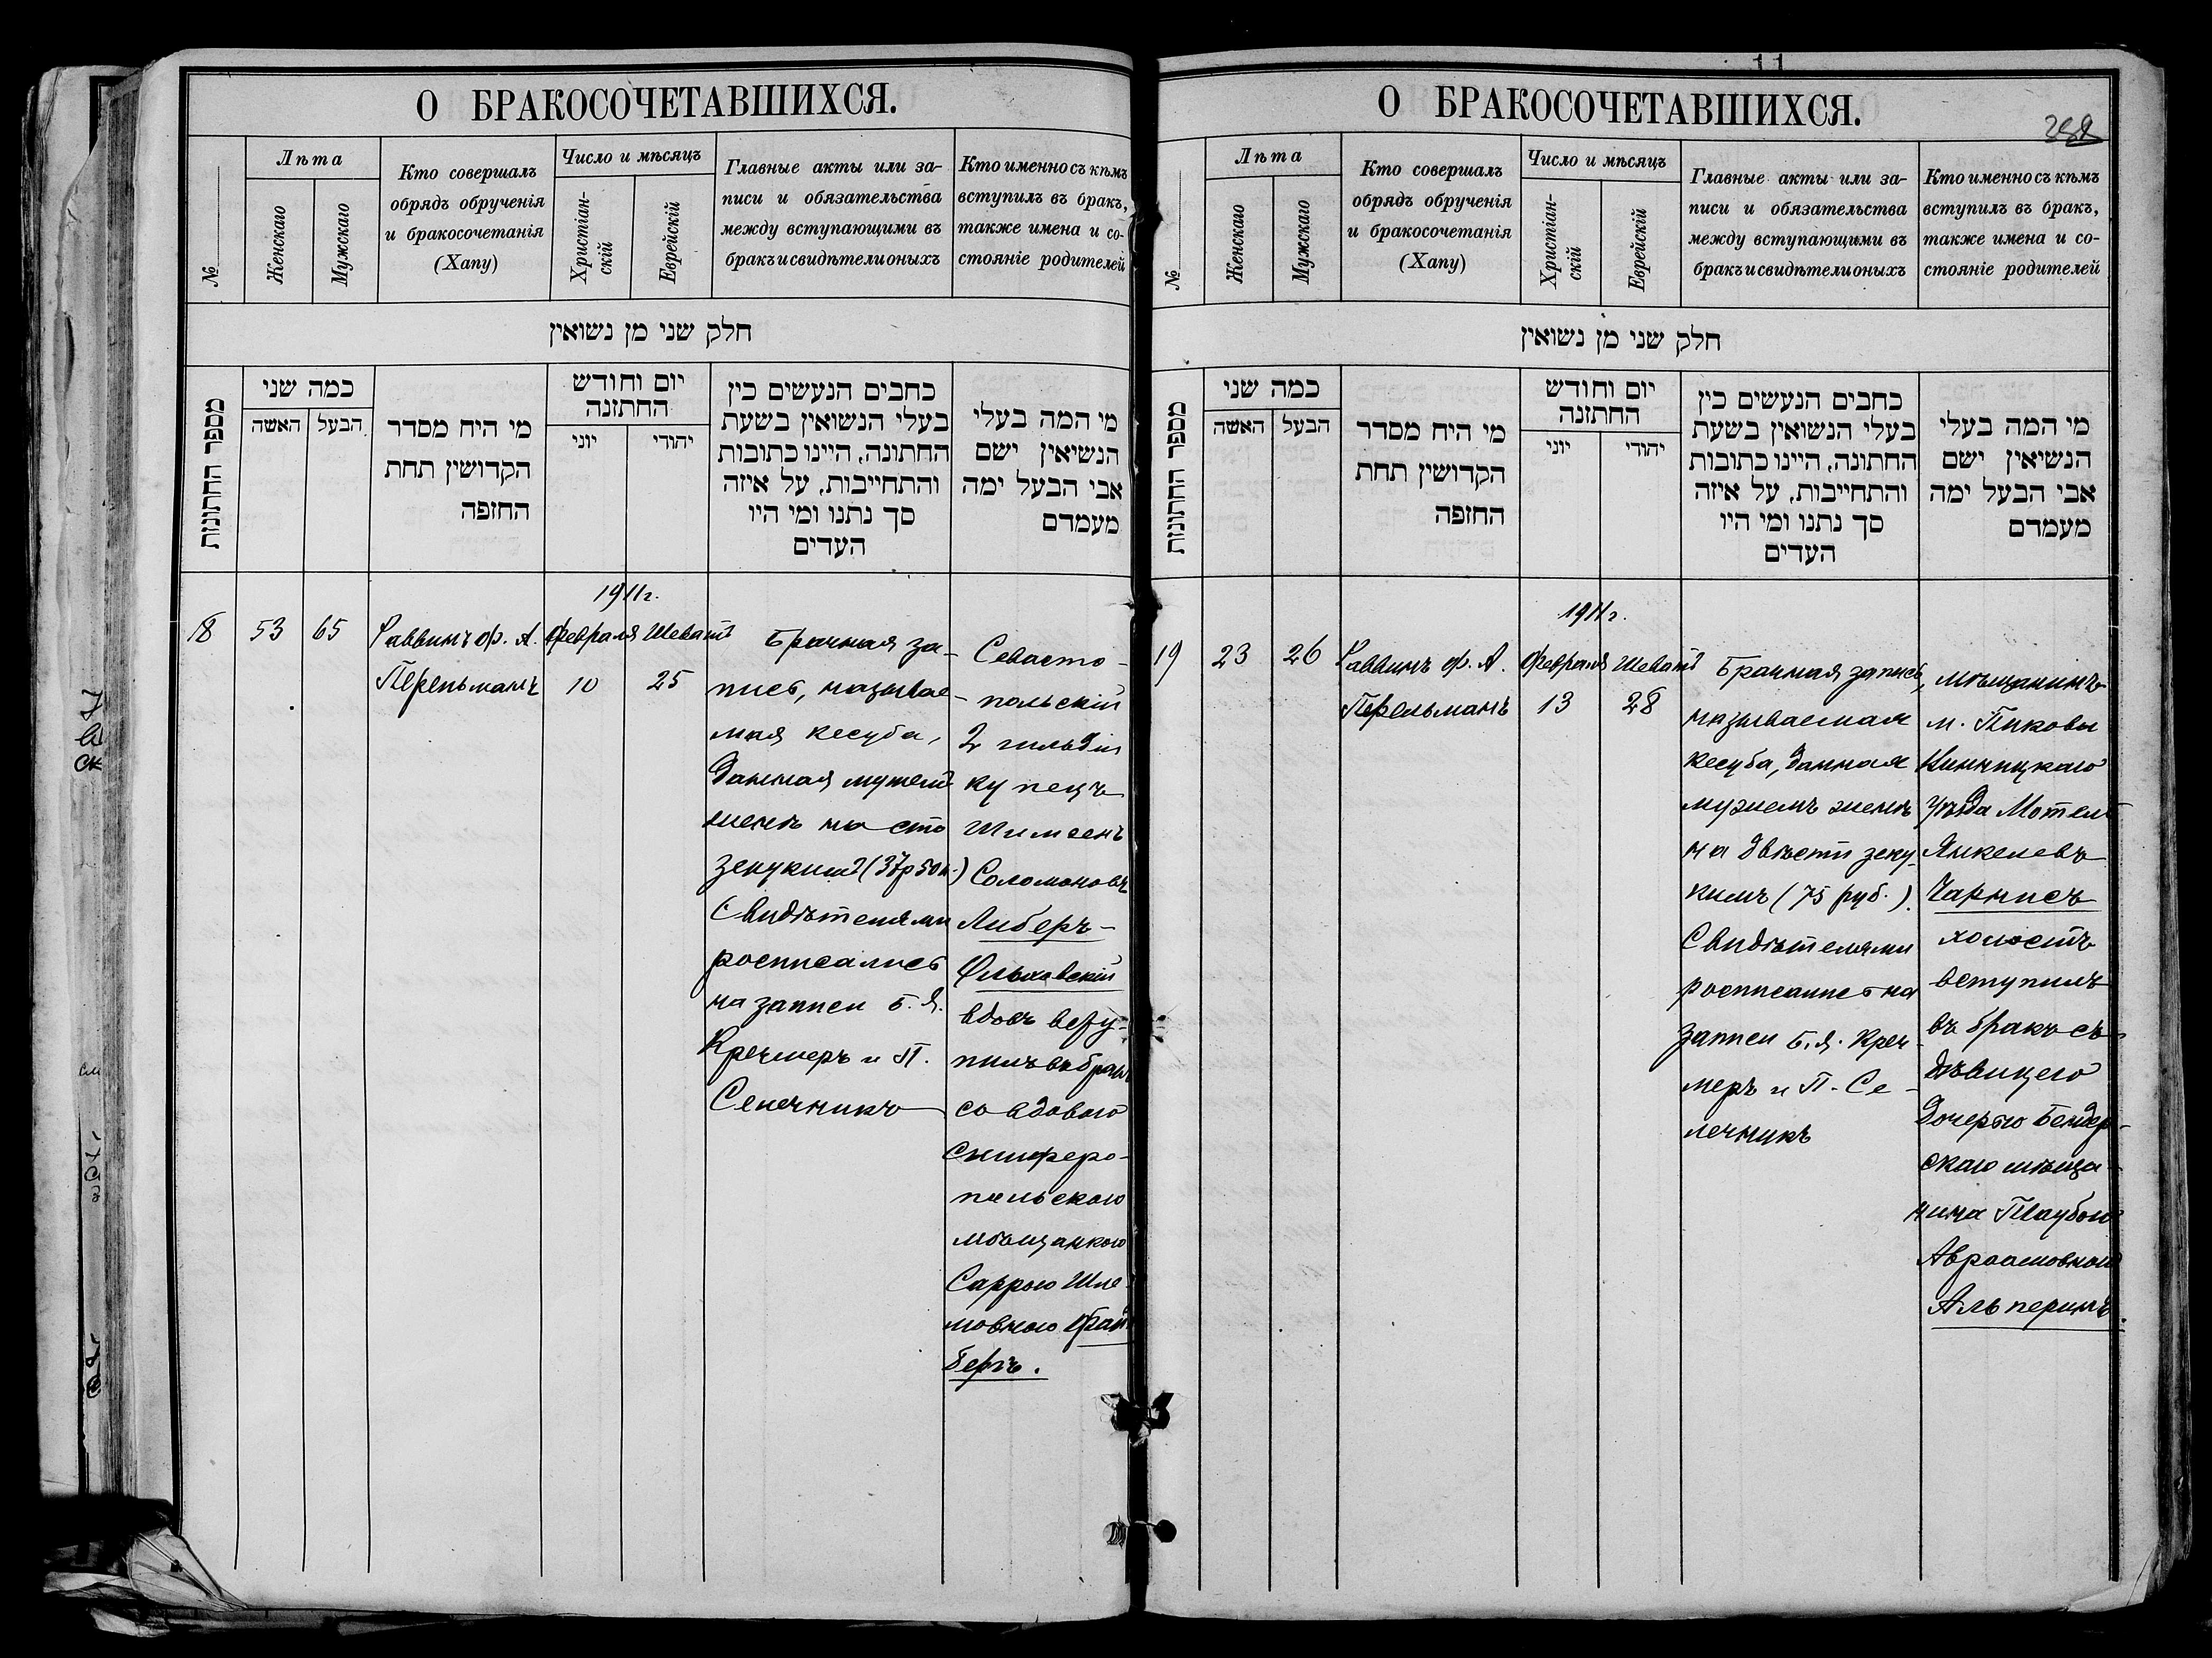 О БРАКОСОЧЕТАВШИХСЯ.
№
Лѣта
Женскаго
Мужскаго
Кто совершалъ
обрядъ обрученія
и бракосочетанія
(Хапу)
Число и мѣсяцъ
Христіан-
скій
Еврейскій
Главные акты или за-
писи и обязательства
между вступающими въ
бракъ и свидѣтели оныхъ
Кто именно съ кѣмъ
вступилъ въ бракъ,
также имена и со-
стояніе родителей
חלק שני מן נשואין
מספר החתונות
כמה שני
האשה
הבעל
מי היח מסדר
הקדושין תחת
החופה
יום וחודש
החתונה
יוני
יהודי
כחבים הנעשים כין
בעלי הנשואין בשעת
החתונה, היינו כתובות
והתחייבות, על איזה
סך נתנו ומי היו
העדים
מי המה בעלי
הנשיאין ישם
אבי הבעל ימה
מעמדם
18
53
65
Раввинъ ф. А.
Перельманъ
1911 г.
Февраля
10
Шеватъ
25
Брачная за-
пись, называе-
мая кесуба,
данная мужемъ
женѣ на сто
зекукимъ (37 р 50 к.)
Свидѣтелями
росписались
на записи Б. Я.
Кречмеръ и П.
Селечникъ
Севасто-
польскій
2 гильдіи
купецъ
Шимеенъ
Соломоновъ
Либеръ-
Ольховскій
вдовъ всту-
пилъ въ бракъ
со вдовою
Симферо-
польскою
мѣщанкою
Саррою Шле-
мовною
бергъ.
11
О БРАКОСОЧЕТАВШИХСЯ.
№
Лѣта
Женскаго
Мужскаго
Кто совершалъ
обрядъ обрученія
и бракосочетанія
(Хапу)
Число и мѣсяцъ
Христіан-
скій
Еврейскій
Главные акты или за-
писи и обязательства
между вступающими въ
бракъ и свидѣтели оныхъ
Кто именно съ кѣмъ
вступилъ въ бракъ,
также имена и со-
стояніе родителей
חלק שני מן נשואין
מספר החתונות
כמה שני
האשה
הבעל
מי היח מסדר
הקדושין תחת
החופה
יום וחודש
החתונה
יוני
יהודי
כחבים הנעשים כין
בעלי הנשואין בשעת
החתונה, היינו כתובות
והתחייבות, על איזה
סך נתנו ומי היו
העדים
מי המה בעלי
הנשיאין ישם
אבי הבעל ימה
מעמדם
19
23
26
Раввинъ ф. А.
Перельманъ
1911 г.
Февраля
13
Шеватъ
28
Брачная запись,
называемая
кесуба, данная
мужемъ женѣ
на двѣсти зеку-
кимъ (75 руб.).
Свидѣтелями
росписались на
записи Б. Я. Креч-
меръ и П. Се-
лечникъ
мѣщанинъ
м. Пиковы
Винницкаго
уѣзда Мотель
Янкелевъ
Чарнисъ
холостъ
вступилъ
въ бракъ съ
дѣвицею
дочерью Бендер-
скаго мѣща-
нина Таубою
Авраамовною
Альперинъ.